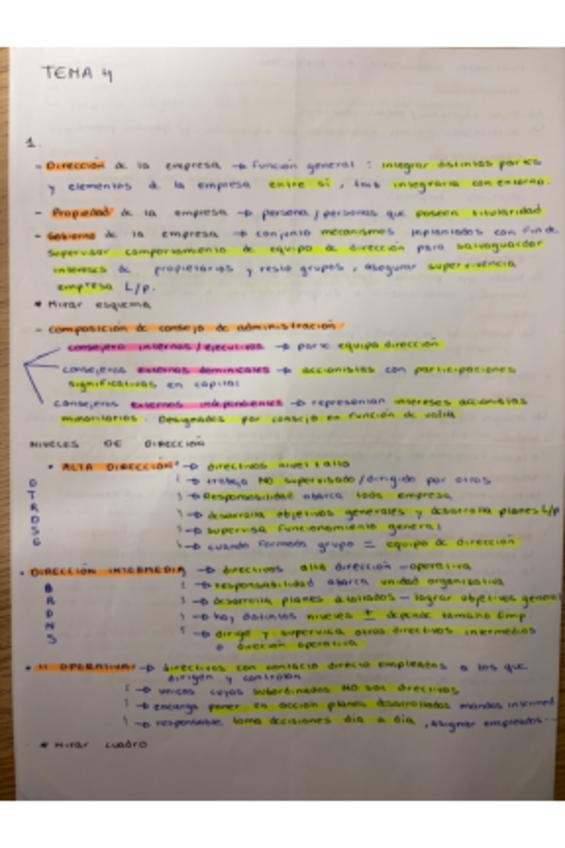 TEMA 4
1.
- Dirección de la empresa → función general : integrar distintas partes
y elementos de la empresa entre sí, tmb integrarla con externo.
- Propiedad de la empresa → persona/personas que poseen titularidad
- Gobierno de la empresa → conjunto mecanismos implantados con fin de
supervisar comportamiento de equipo de dirección para salvaguardar
intereses de propietarios y resto grupos, asegurar supervivencia
empresa L/p.
* Mirar esquema
- composición de consejo de administración
consejero internos/ejecutivos → parte equipo dirección
consejeros externos dominicales → accionistas con participaciones
significativas en capital
consejeros externos independientes → representan intereses accionistas
minoritarios. Designados por consejo en función de valía
NIVELES DE DIRECCIÓN
• ALTA DIRECCIÓN → directivos nivel + alto
→ trabajo NO supervisado/dirigido por otros
→ Responsabilidad abarca toda empresa
→ desarrolla objetivos generales y desarrolla planes L/p
→ supervisa funcionamiento general
→ cuando formada grupo = equipo de dirección
D
T
R
D
S
G
• DIRECCIÓN INTERMEDIA → directivos alta dirección - operativa
→ responsabilidad abarca unidad organizativa
→ desarrolla planes detallados - lograr objetivos general
→ hay distintos niveles ± depende tamaño Emp
→ dirige y supervisa otros directivos intermedios
o dirección operativa
R
D
N
S
• OPERATIVA → directivos con contacto directo empleados a los que
dirigen y controlan
→ únicos cuyos subordinados NO son directivos
→ encarga poner en acción planes desarrollados mandos intermed
→ responsable toma decisiones día a día, asignar empleados...
* Mirar cuadro